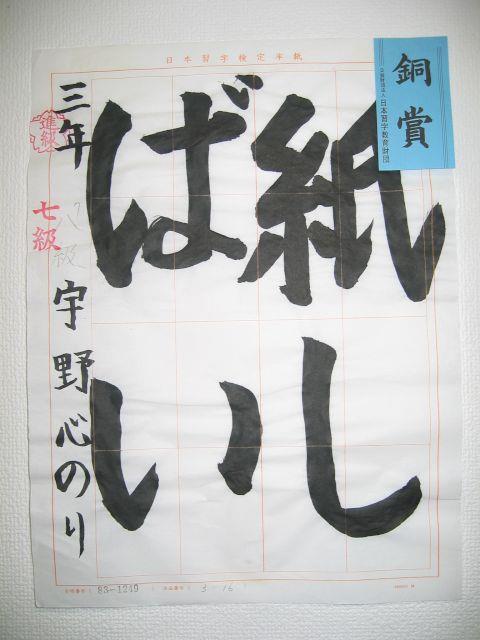 日本習字検定半紙
銅賞
公益財団法人 日本習字教育財団
紙し
ばい
三年 宇野心のり
進級
七級
八級
83-1249
3-16